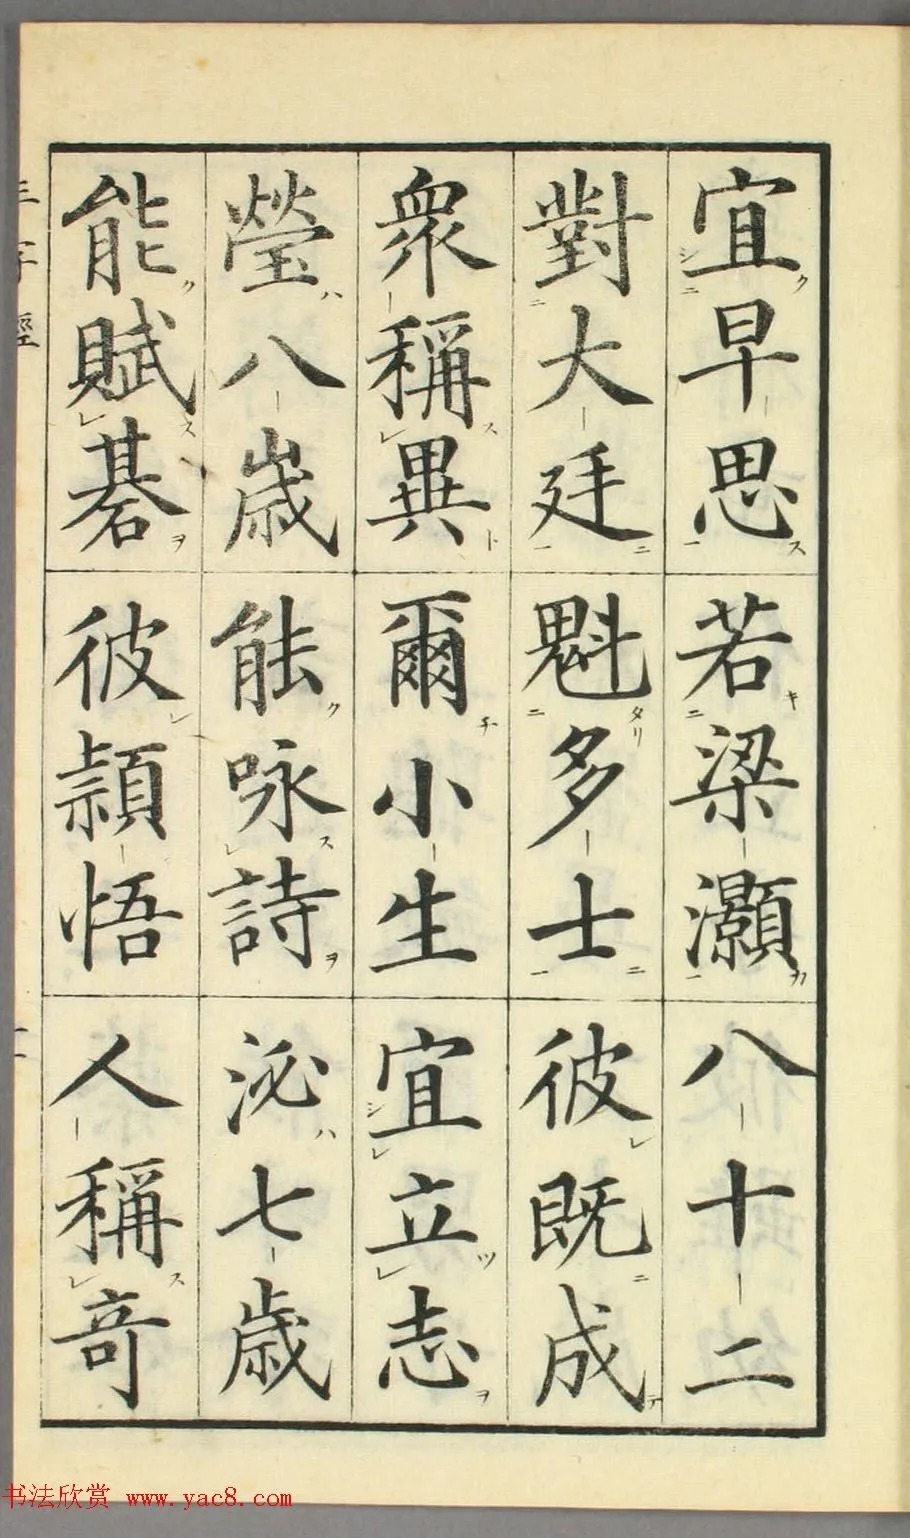 宜早思若梁灝八十二
對大廷魁多士彼既成
衆稱異爾小生宜立志
瑩八歳能咏詩泌七歳
能賦碁彼穎悟人稱奇
三字經
书法欣赏 www.yac8.com